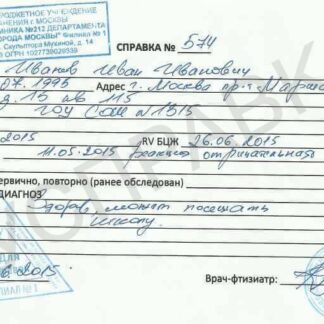 БЮДЖЕТНОЕ УЧРЕЖДЕНИЕ
АНЕНИЯ г. МОСКВЫ
ИНИКА №212 ДЕПАРТАМЕНТА
ОРОДА МОСКВЫ" Филиал № 1
Скульптора Мухиной, д. 14
СПРАВКА № 574
Иванов Иван Иванович
07.1995 г. Москва пр-т Марша
д. 13 кв 115
ГОУ СОШ №1315
2015 RV БЦЖ 26.06.2015
11.05.2015 реакция отрицательная
ервично, повторно (ранее обследован)
ДИАГНОЗ
Здоров, может посещать
школу.
2015
Врач-фтизиатр:
ДЛЯ
ФИЛИАЛ № 1